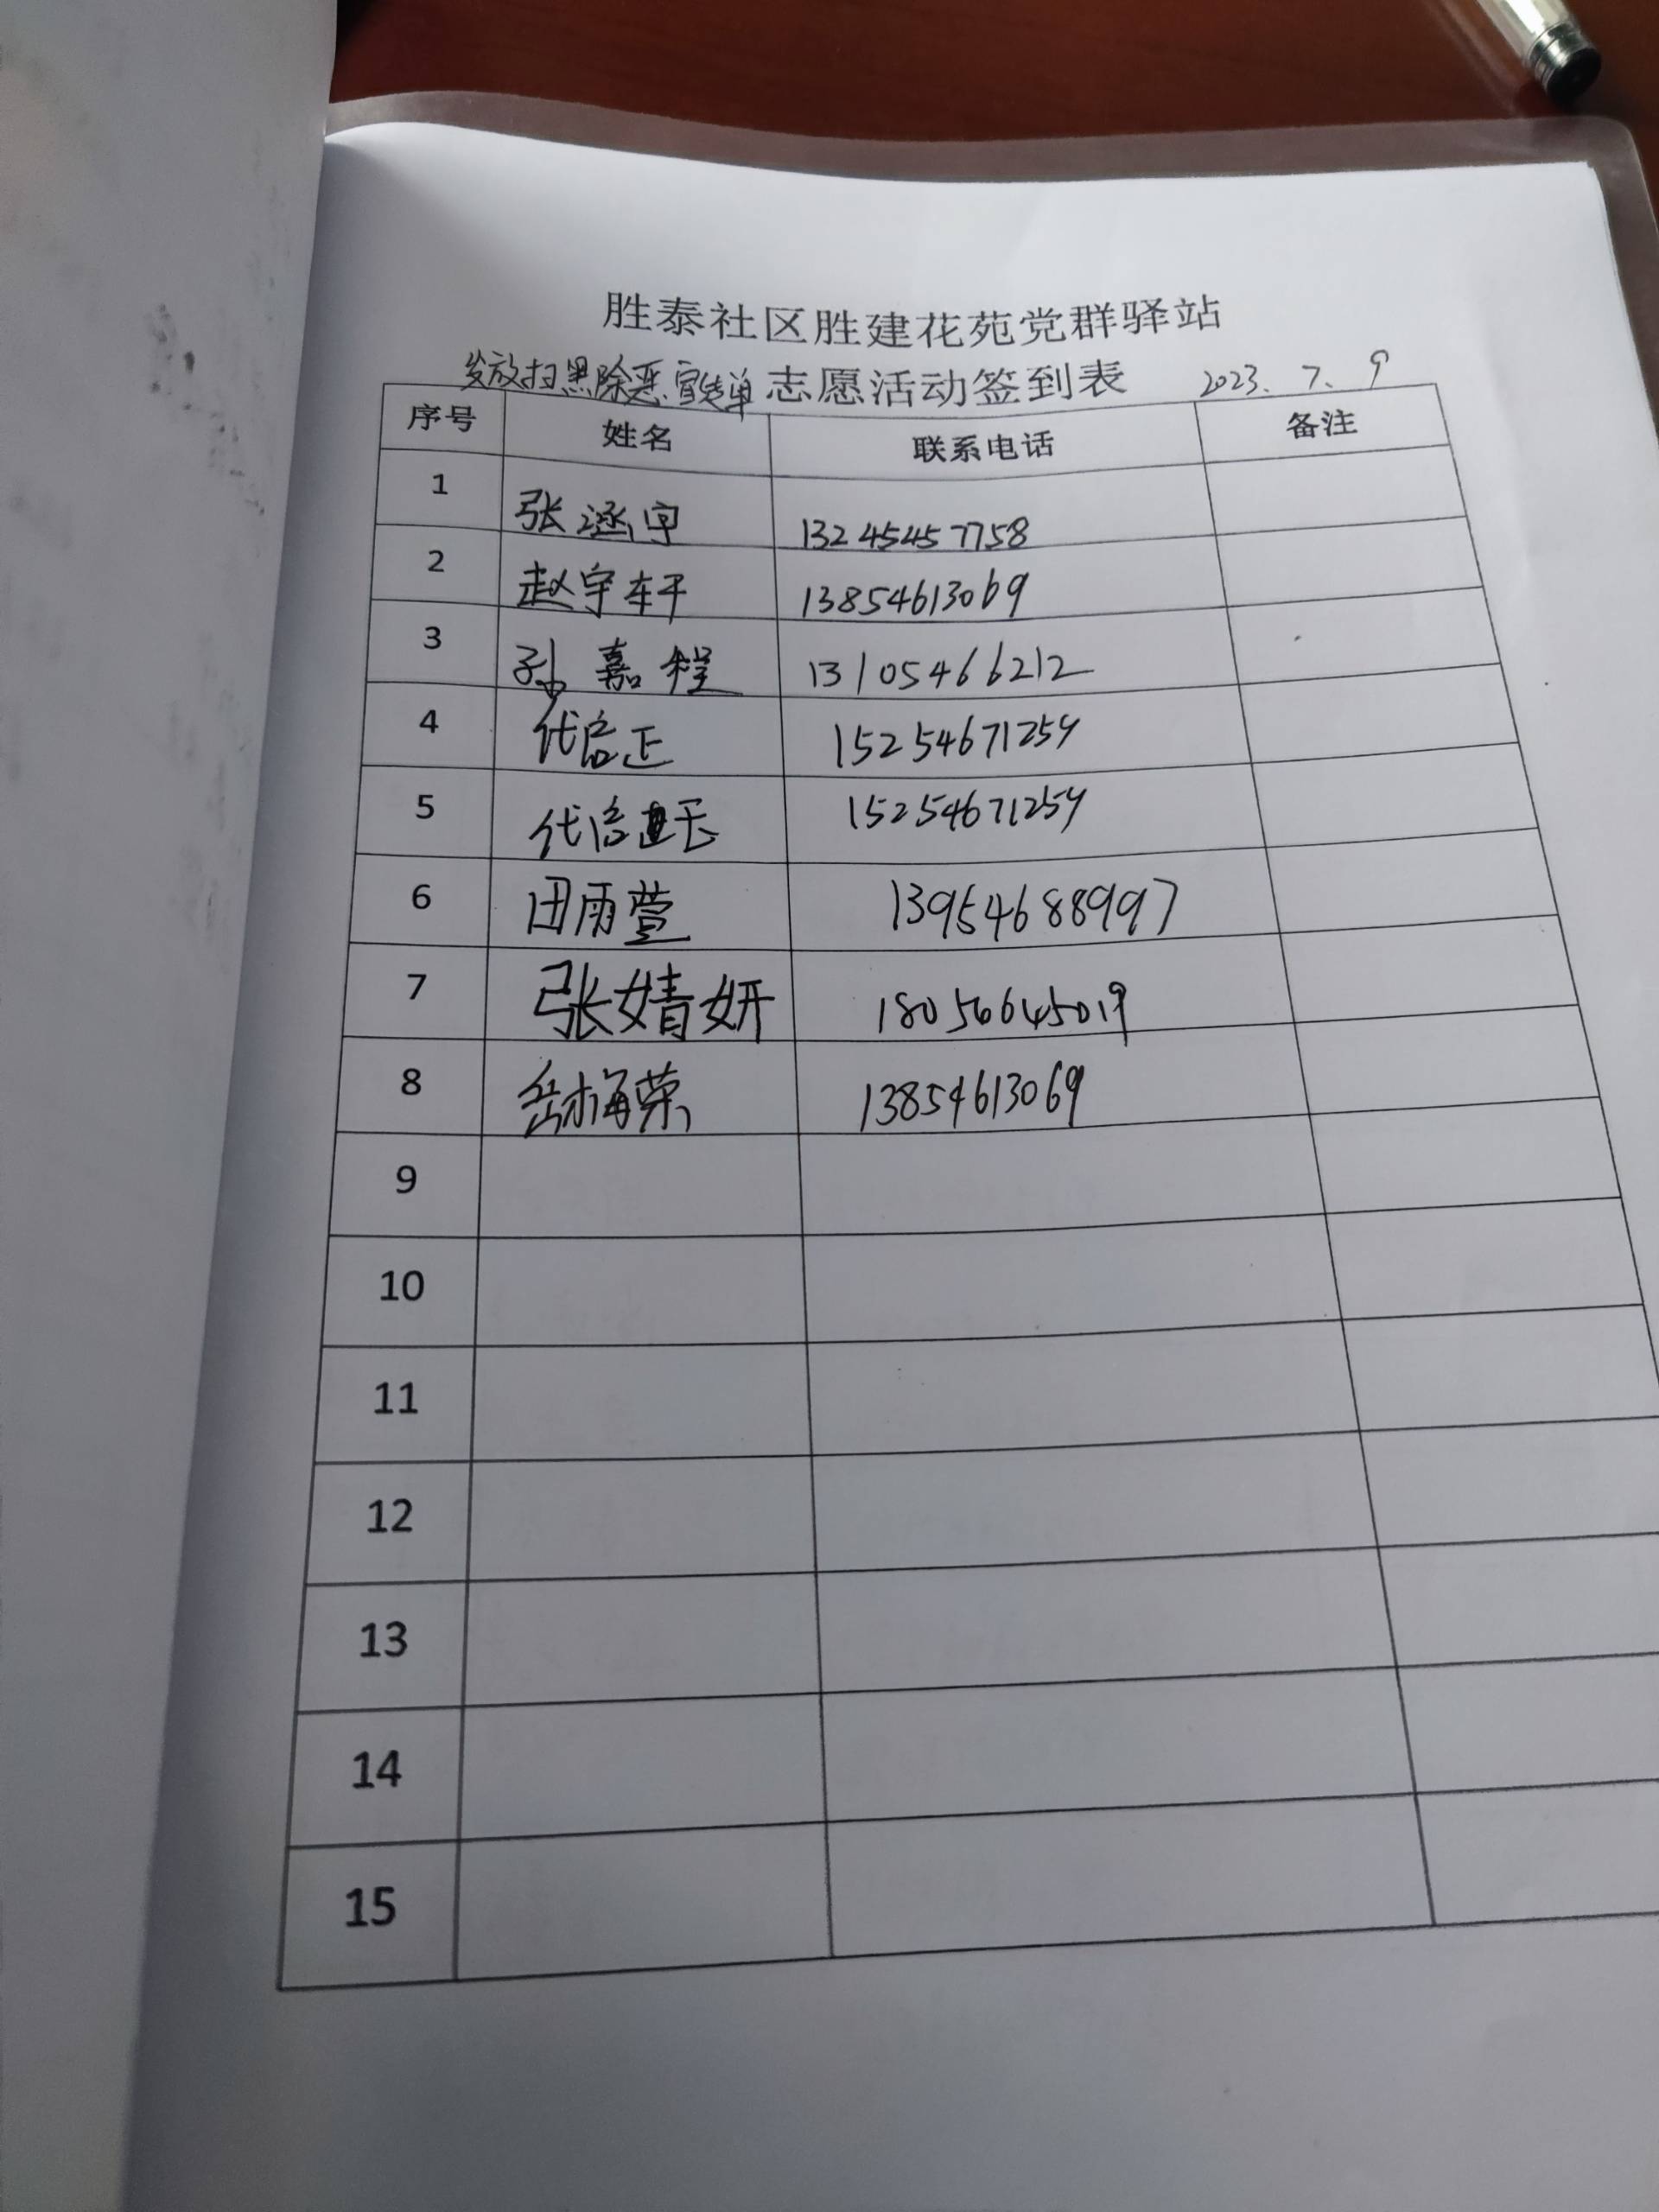 胜泰社区胜建花苑党群驿站
发放扫黑除恶宣传单 志愿活动签到表 2023.7.9
序号 姓名 联系电话 备注
1 张涵宇 13245457758
2 赵宇轩 13854613069
3 孙嘉程 13105466212
4 代启正 15254671259
5 代启 15254671259
6 田雨萱 13954688997
7 张婧妍 18056645019
8 岳梅荣 13854613069
9
10
11
12
13
14
15